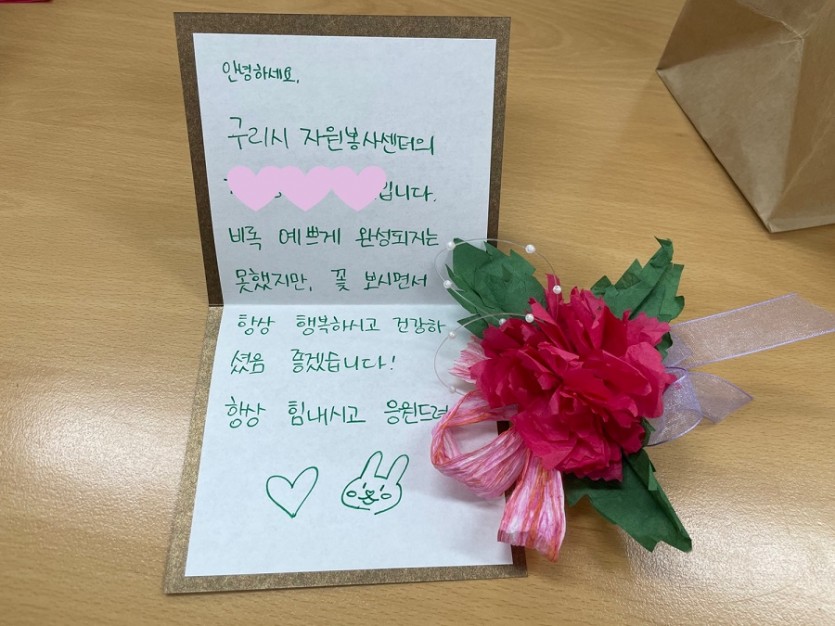 안녕하세요.
구리시 자원봉사센터의
입니다.
비록 예쁘게 완성되지는
못했지만, 꽃 보시면서
항상 행복하시고 건강하
셨음 좋겠습니다!
항상 힘내시고 응원드려